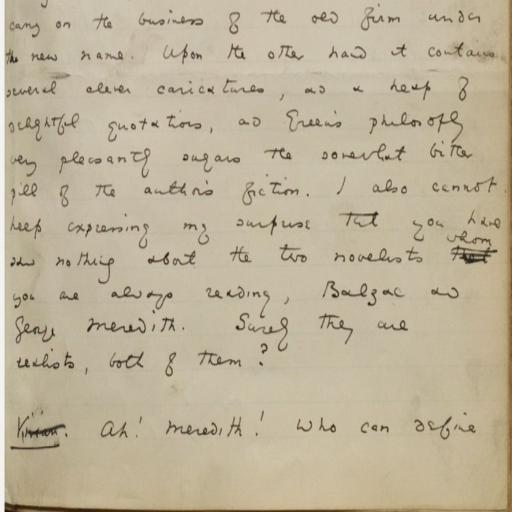 carry on the business of the old firm under
the new name. Upon the other hand it contains
several clever caricatures, and a heap of
delightful quotations, and Green's philosophy
very pleasantly sugars the somewhat bitter
pill of the author's fiction. I also cannot
help expressing my surprise that you have
whom
said nothing about the two novelists that
you are always reading, Balzac and
George Meredith. Surely they are
realists, both of them?
Vivian. Ah! Meredith! Who can define